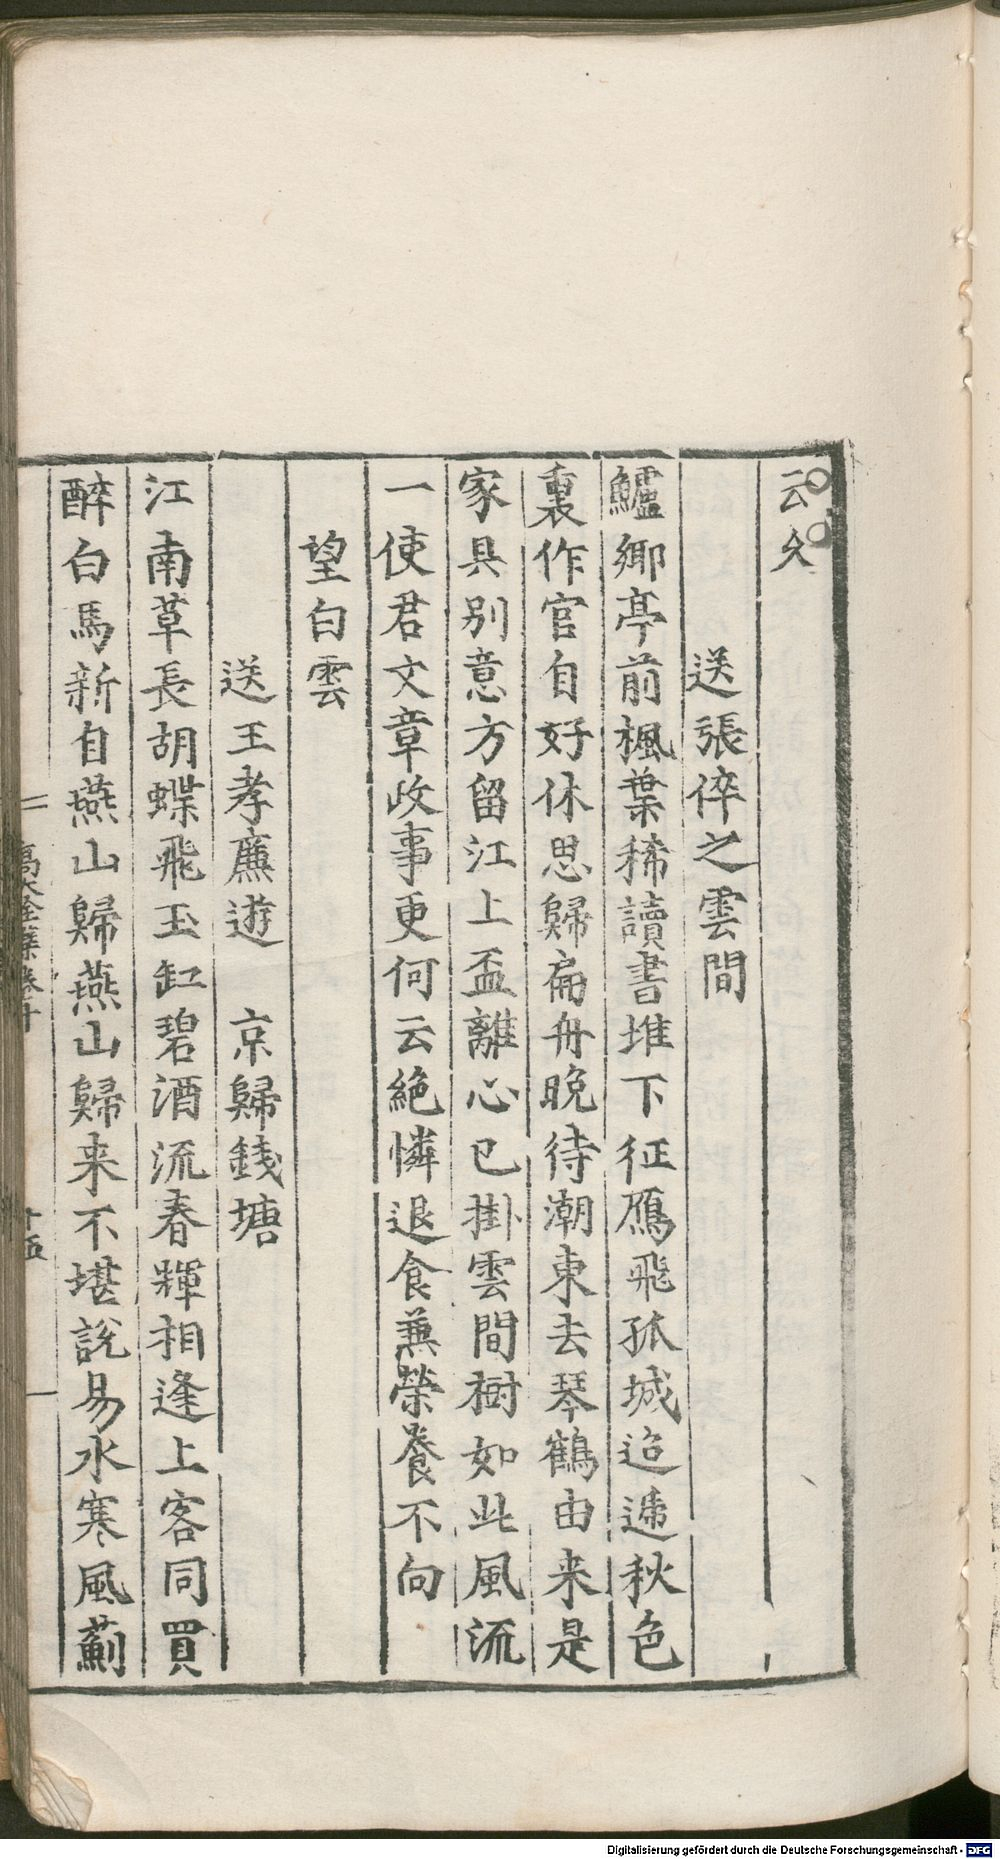 云久
送張倅之雲間
鱸鄉亭前楓葉稀讀書堆下征鴈飛孤城迢遞秋色
裏作官自好休思歸扁舟晚待潮東去琴鶴由来是
家具别意方留江上盃離心已掛雲間樹如此風流
一使君文章政事更何云絶憐退食兼榮養不向
望白雲
送王孝廉遊 京歸錢塘
江南草長胡蝶飛玉缸碧酒流春輝相逢上客同買
醉白馬新自燕山歸燕山歸来不堪說易水寒風薊
高太全藁卷之十 十五
Digitalisierung gefördert durch die Deutsche Forschungsgemeinschaft - DFG